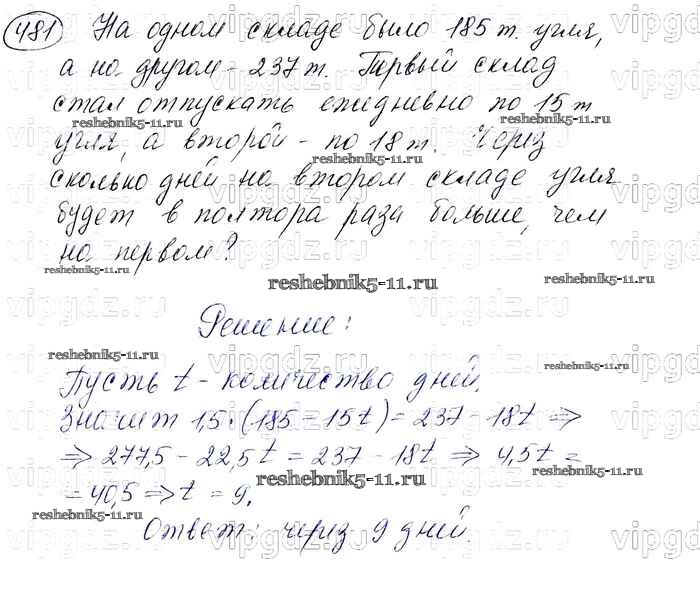 481 На одном складе было 185 т. угля,
а на другом - 237 т. Первый склад
стал отпускать ежедневно по 15 т
угля, а второй - по 18 т. Через
сколько дней на втором складе угля
будет в полтора раза больше, чем
на первом?
Решение:
Пусть t - количество дней.
Значит 1,5·(185 - 15t) = 237 - 18t ⇒
⇒ 277,5 - 22,5t = 237 - 18t ⇒ 4,5t =
= 40,5 ⇒ t = 9.
Ответ: через 9 дней.
vipgdz.ru
reshebnik5-11.ru